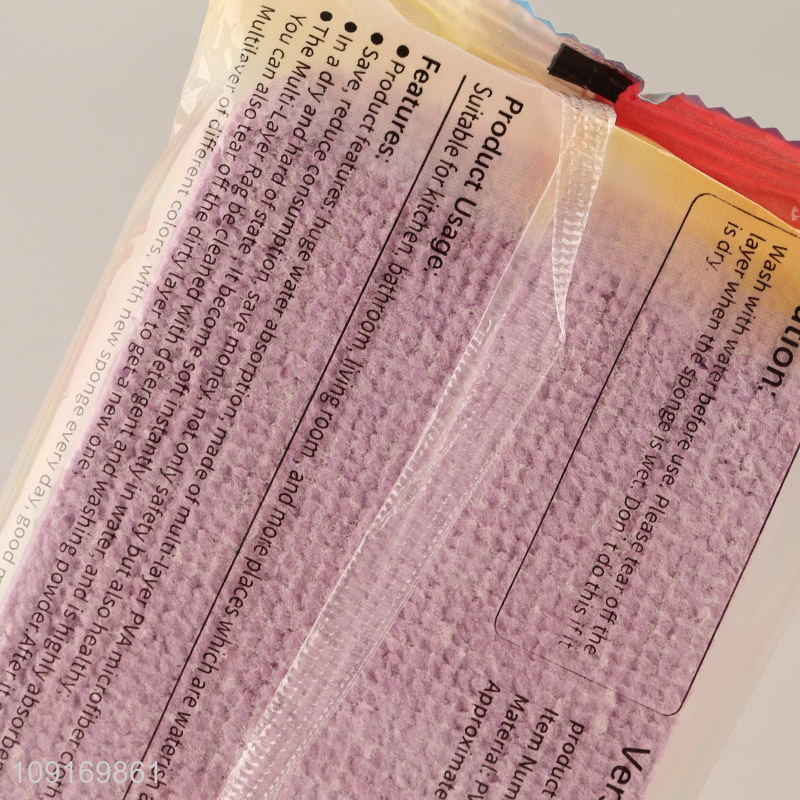 Wash with water before use. Please tear off the
layer when the sponge is wet. Don't do this if it
is dry.
Product Usage:
Suitable for kitchen, bathroom, living room, and more places which are
Features:
● Product features: huge water absorption, made of multi-layer PVA microfiber
● Save, reduce consumption, save money, not only safety but also healthy;
● In a dry and hard of state, it become soft instantly in water, and is highly
● The Multi-Layer Rag be cleaned with detergent and washing powder.After
You can also tear off the dirty layer to get a new one;
Multilayer of different colors, with new sponge every day, good
product
Item
Material:
Approximate
109169861